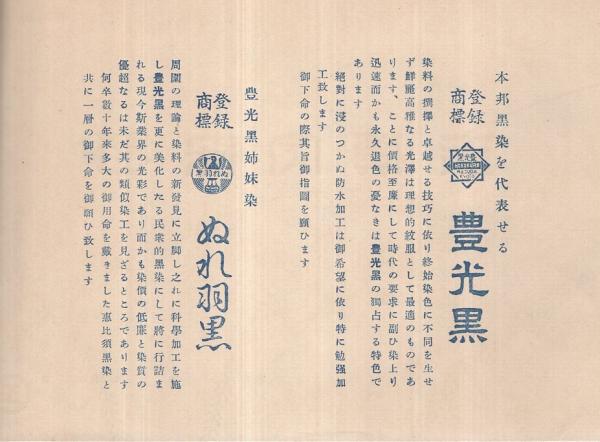 本邦黒染を代表せる
登録
商標
豊光黒
豊光黒
染料の撰擇と卓越せる技巧に依り終始染色に不同を生せ
ず鮮麗高雅なる光澤は理想的紋服として最適のものであ
ります、ことに價格至廉にして時代の要求に副ひ染上り
迅速而かも永久退色の憂なきは豊光黒の獨占する特色で
あります
絕對に浸のつかぬ防水加工は御希望に依り特に勉强加
工致します
御下命の際其旨御指圖を願ひます
豊光黒姉妹染
登録
商標
ぬれ羽黒
ぬれ羽黒
周圍の理論と染料の新發見に立脚し之れに科學加工を施
し豊光黒を更に美化したる民衆的黒染にして將に行詰ま
れる現今斯業界の光彩であり而かも染價の低廉と染質の
優超なるは未だ其の類似染工を見ざるところであります
何卒數十年來多大の御用命を戴きました惠比須黒染と
共に一層の御下命を御願ひ致します